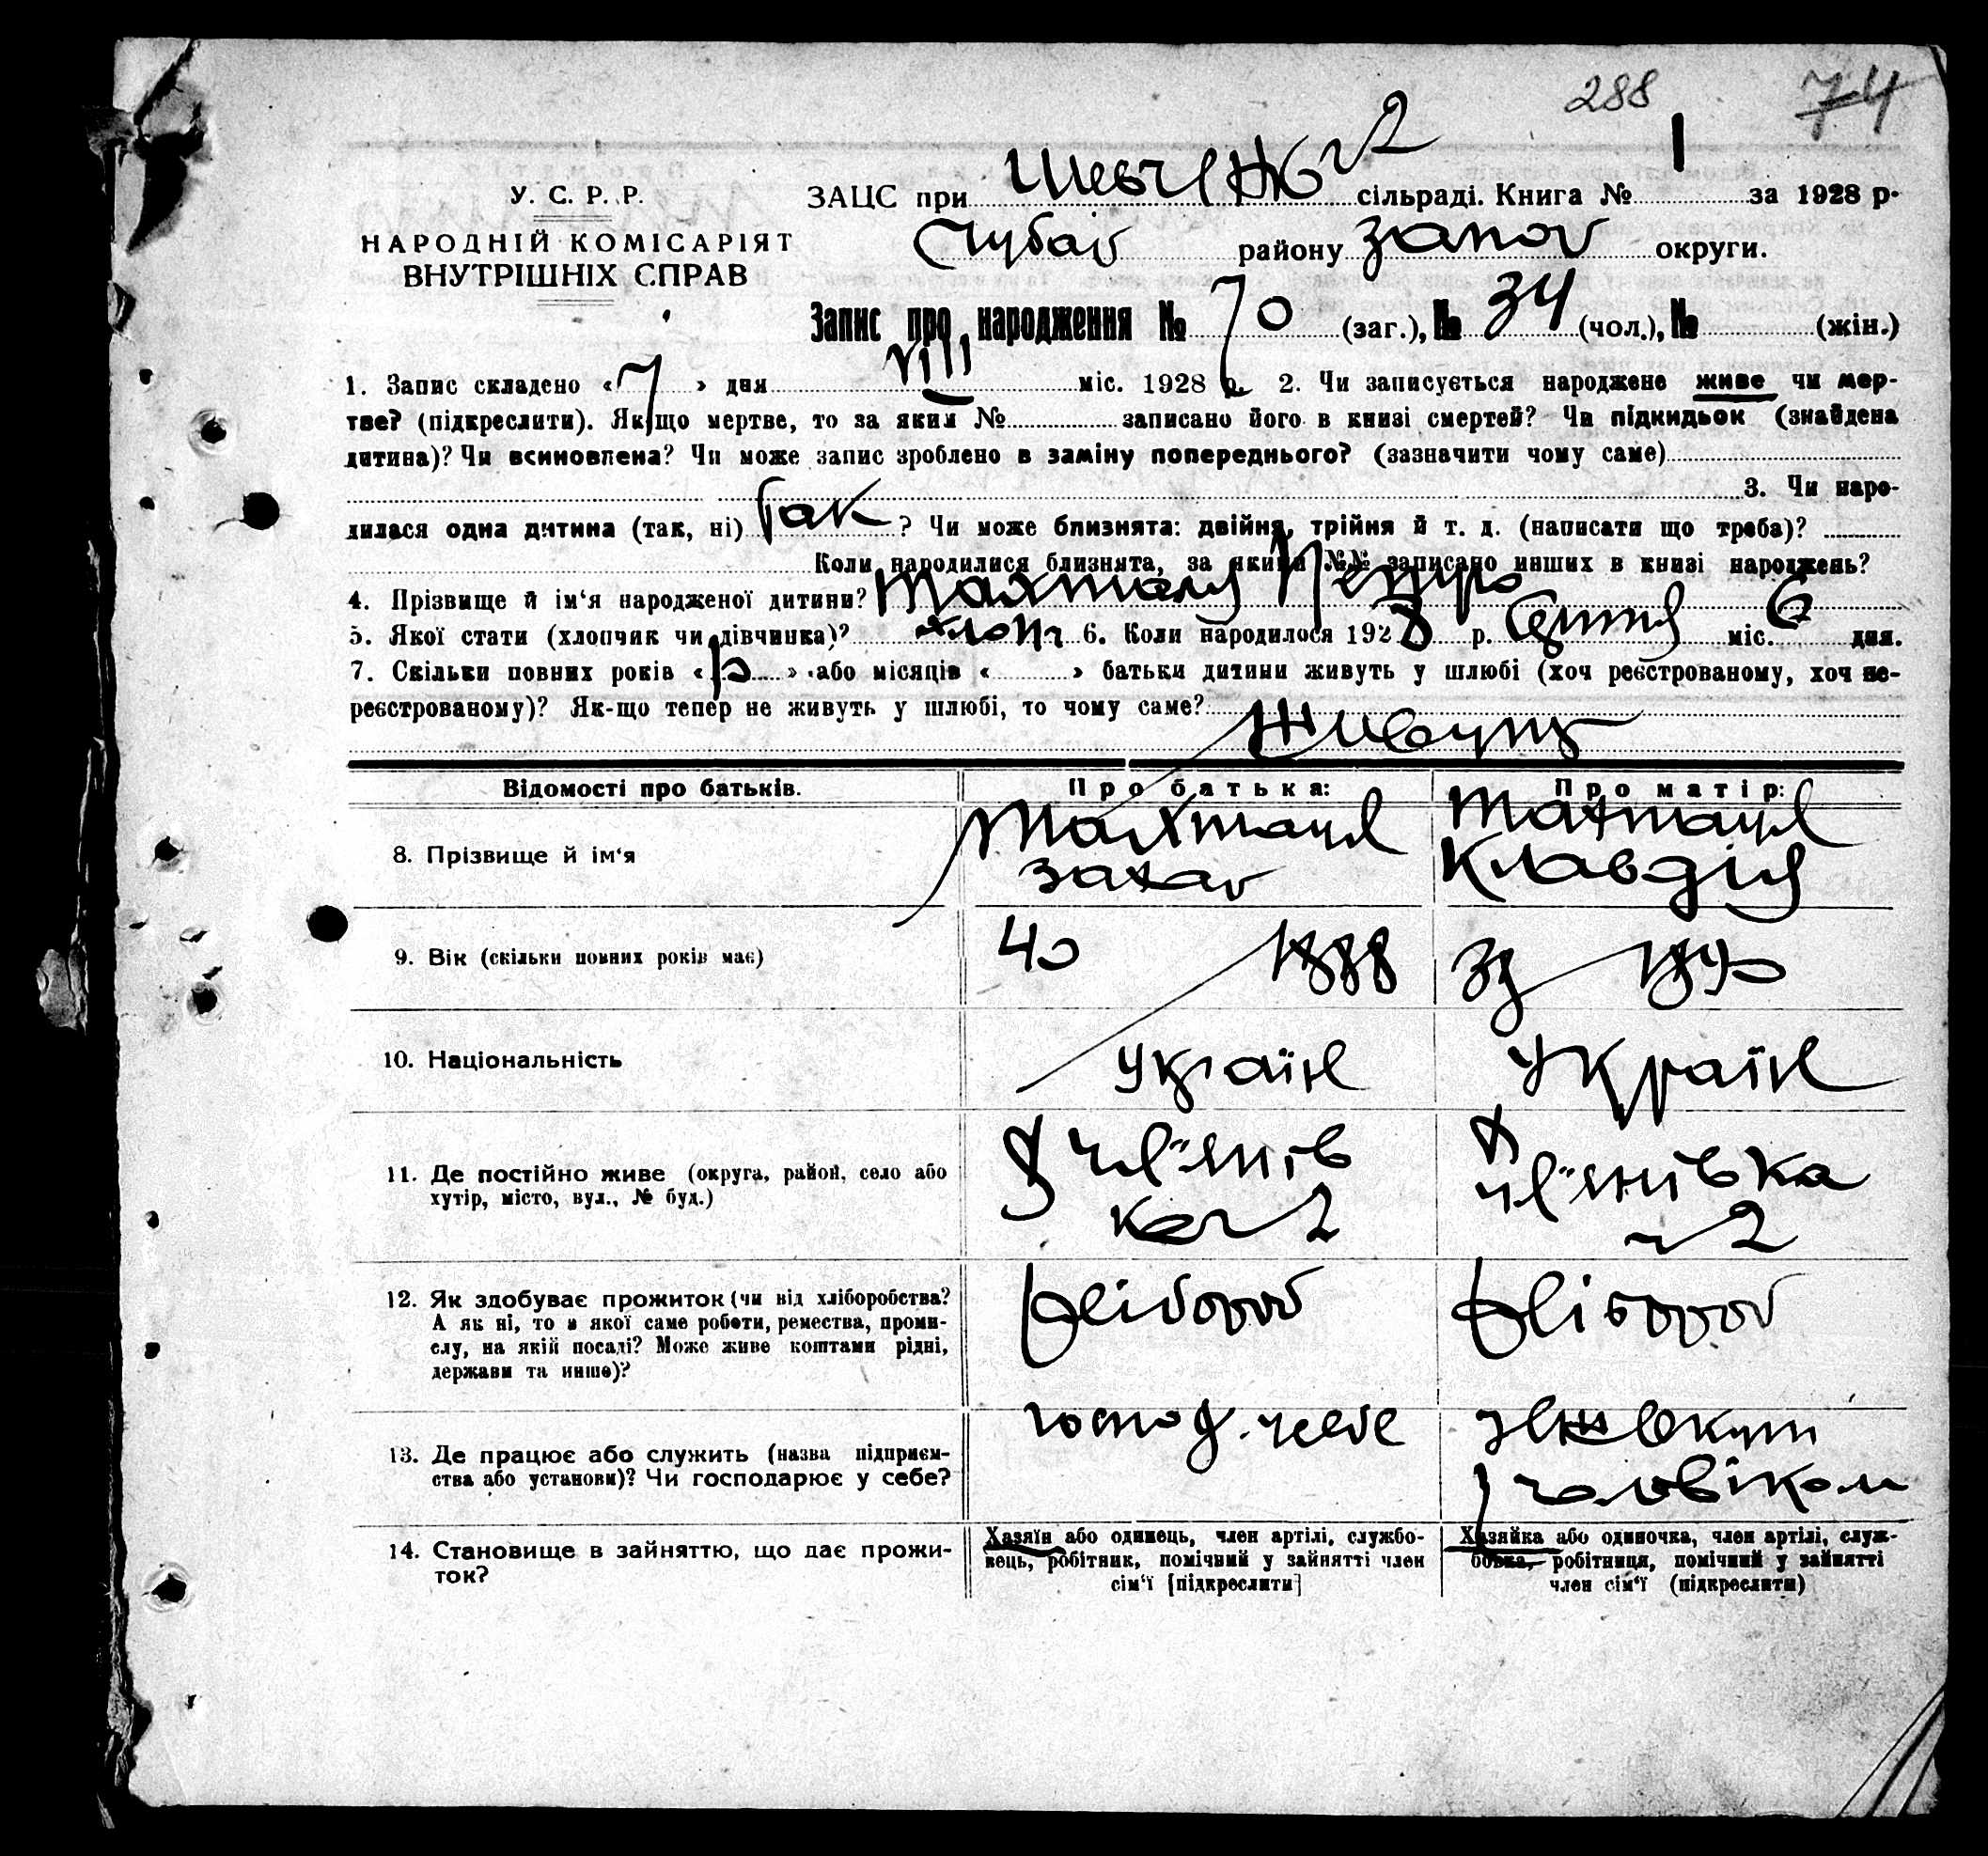 288 74
У. С. Р. Р.
НАРОДНІЙ КОМІСАРІЯТ
ВНУТРІШНІХ СПРАВ
ЗАЦС при Шевченк 2 сільраді. Книга № 1 за 1928 р.
Чубар району Запор округи.
Запис про народження № 70 (заг.), № 34 (чол.), № (жін.)
1. Запис складено «7» дня VIII міс. 1928 р. 2. Чи записується народжене живе чи мер-
тве? (підкреслити). Як-що мертве, то за яким № записано його в книзі смертей? Чи підкидьок (знайдена
дитина)? Чи всиновлена? Чи може запис зроблено в заміну попереднього? (зазначити чому саме)
3. Чи наро-
дилася одна дитина (так, ні) Так ? Чи може близнята: двійня, трійня й т. д. (написати що треба)?
Коли народилися близнята, за якими №№ записано инших в книзі народжень?
4. Прізвище й ім‘я народженої дитини? Петро
5. Якої стати (хлопчик чи дівчинка)? хлопч 6. Коли народилося 1928 р. міс. 6 дня.
7. Скільки повних років « » або місяців « » батьки дитини живуть у шлюбі (хоч реєстрованому, хоч не-
реєстрованому)? Як-що тепер не живуть у шлюбі, то чому саме?
Живуть
Відомості про батьків. Про батька: Про матір:
8. Прізвище й ім‘я
Захар Клавдія
9. Вік (скільки повних років має) 40 1888
10. Національність україн Україн
11. Де постійно живе (округа, район, село або
хутір, місто, вул., № буд.)
12. Як здобуває прожиток (чи від хліборобства?
А як ні, то з якої саме роботи, ремества, проми-
слу, на якій посаді? Може живе коштами рідні,
держави та инше)?
хлібороб хлібороб
13. Де працює або служить (назва підприєм-
ства або установи)? Чи господарює у себе?
господ. у себе
чоловіком
14. Становище в зайняттю, що дає прожи-
ток?
Хазяїн або одинець, член артілі, службо-
вець, робітник, помічний у зайнятті член
сім‘ї [підкреслити]
Хазяйка або одиночка, член артілі, служ-
бовка, робітниця, помічний у зайнятті
член сім‘ї (підкреслити)